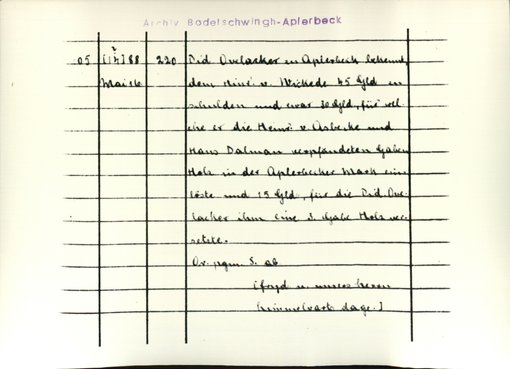 Archiv Bodelschwingh-Aplerbeck
05 [14]88 220 Did. Ovelacker in Aplerbeck bekennt,
Mai 16 dem Heinr. v. Wickede 45 Gld. zu
schulden und zwar 30 Gld., für wel-
che er die Heinr. v. Asbecke und
Hans Dalman verpfändeten Gaben
Holz in der Aplerbecker Mark ein-
löste und 15 Gld., für die Did. Ove-
lacker ihm eine 3. Gabe Holz ver-
setzte.
Or. pgm. S. ab
[fryd. n. unsers heren
hemmelvart dage.]